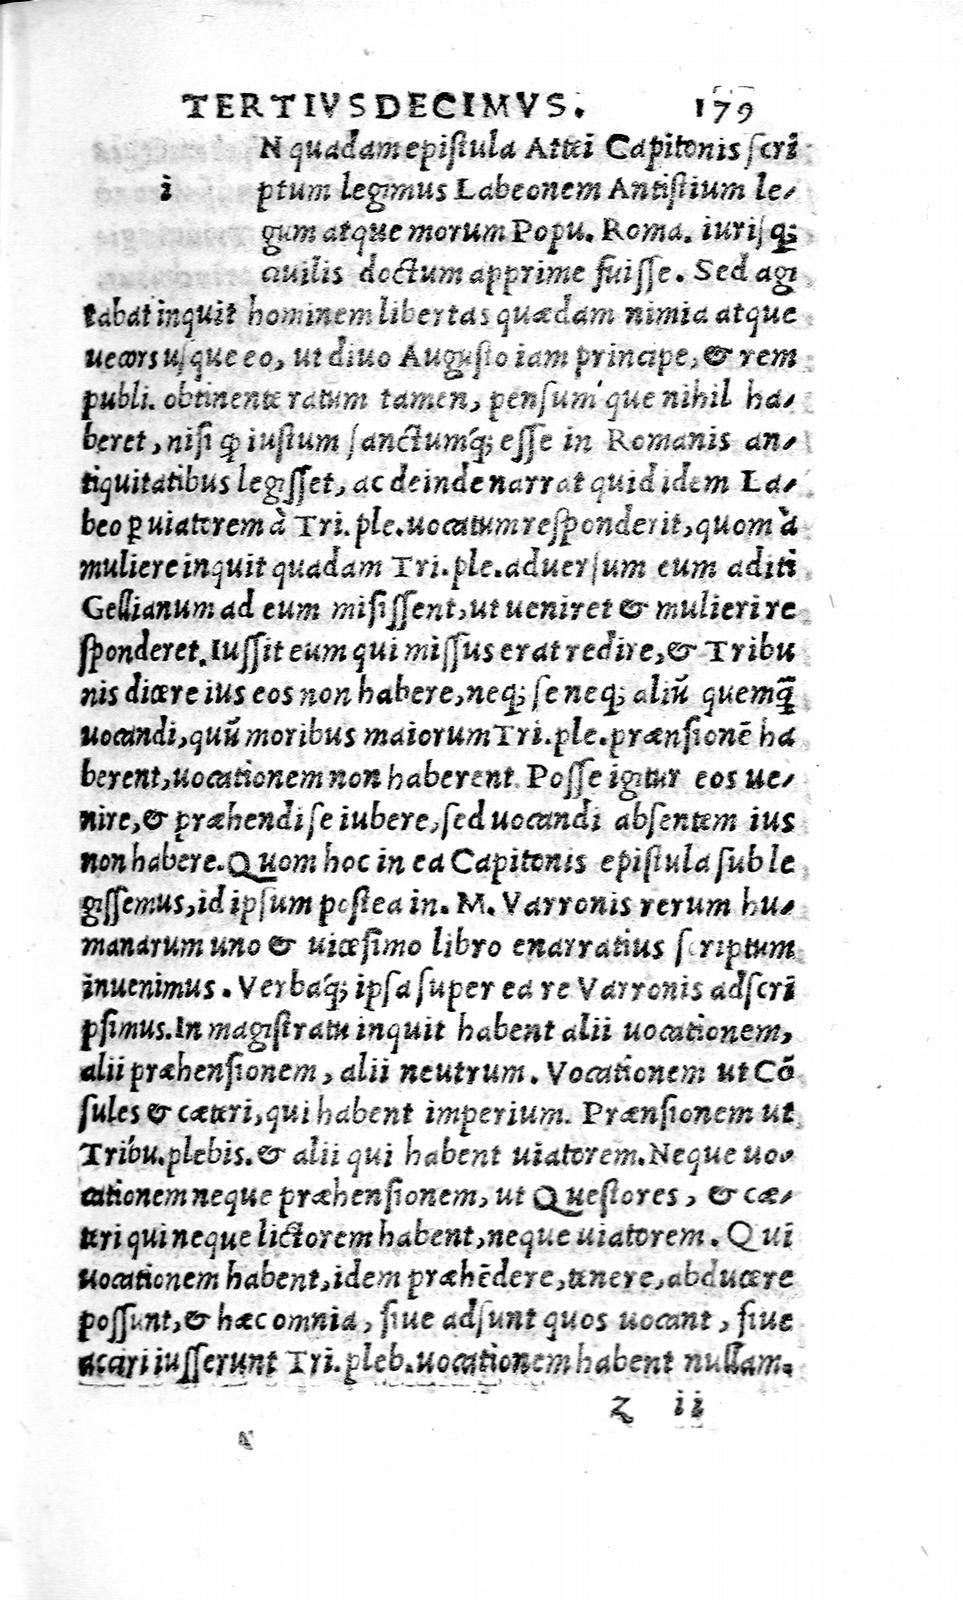 TERTIVSDECIMVS. 179
N quadam epiſtula Attei Capitonis ſcri
i ptum legimus Labeonem Antiſtium le-
gum atque morum Popu. Roma. iuriſq;
ciuilis doctum apprime fuiſſe. Sed agi
tabat inquit hominem libertas quædam nimia atque
uecors uſque eo, ut diuo Auguſto iam principe, & rem
publi. obtinente ratum tamen, penſum'que nihil ha-
beret, niſi ꝙ iuſtum ſanctumq́; eſſe in Romanis an-
tiquitatibus legiſſet, ac deinde narrat quid idem La-
beo ꝑ uiatorem à Tri. ple. uocatum reſponderit, quom à
muliere inquit quadam Tri. ple. aduerſum eum aditi
Gellianum ad eum miſiſſent, ut ueniret & mulieri re
ſponderet. Iuſſit eum qui miſſus erat redire, & Tribu
nis dicere ius eos non habere, neq; ſe neq; aliū quemq̄
uocandi, quū moribus maiorum Tri. ple. prænſionē ha
berent, uocationem non haberent. Poſſe igitur eos ue-
nire, & præhendi ſe iubere, ſed uocandi abſentem ius
non habere. Quom hoc in ea Capitonis epiſtula ſub le
giſſemus, id ipſum poſtea in. M. Varronis rerum hu-
manarum uno & uiceſimo libro enarratius ſcriptum
inuenimus. Verbaq́; ipſa ſuper ea re Varronis adſcri
pſimus. In magiſtratu inquit habent alii uocationem,
alii præhenſionem, alii neutrum. Vocationem ut Cō
ſules & cæteri, qui habent imperium. Prænſionem ut
Tribu. plebis. & alii qui habent uiatorem. Neque uo-
cationem neque præhenſionem, ut Queſtores, & cæ-
teri qui neque lictorem habent, neque uiatorem. Qui
uocationem habent, idem præhēdere, tenere, abducere
poſſunt, & hæc omnia, ſiue adſunt quos uocant, ſiue
acciri iuſſerunt Tri. pleb. uocationem habent nullam.
z ii